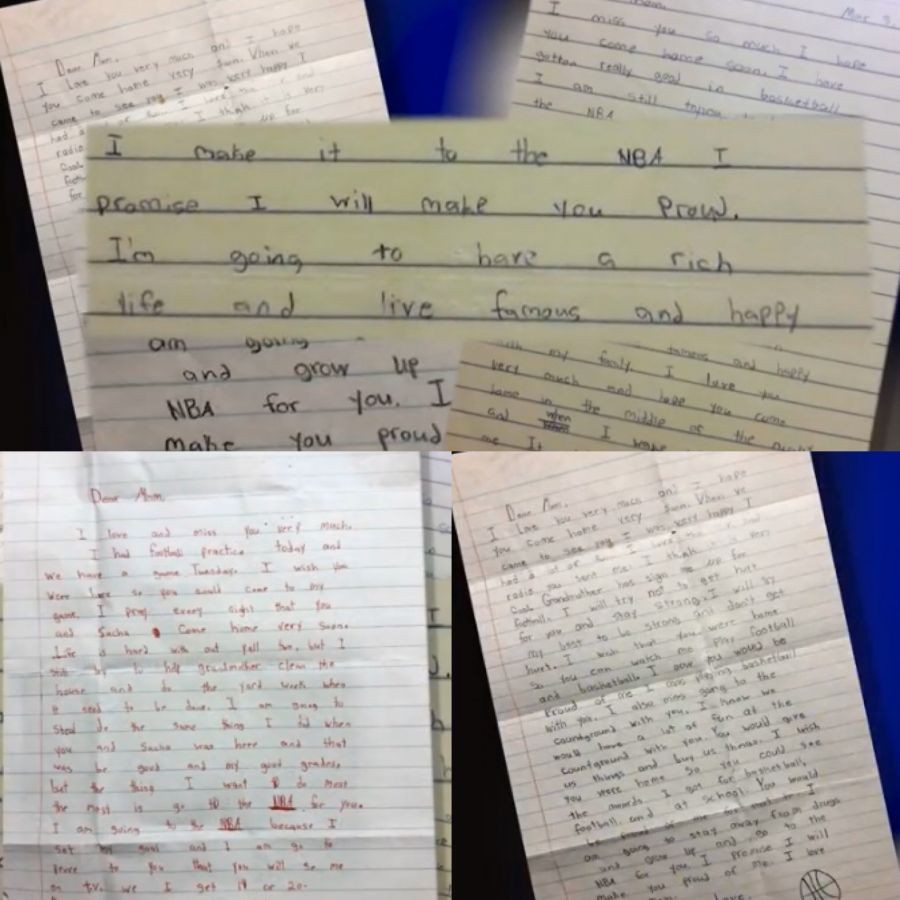 Dear Mom,
I Love You very much and I hope
You come home very
came to see you I was very happy I
radio
Cool
for
Mar 3,
I miss you so much I hope
you come home soon. I have
gotten really good in basketball
I am still
the NBA
I make it to the NBA I
promise I will make you Proud.
I'm going to have a rich
life and live famous and happy
am going
and grow up
NBA for you. I
make you proud
with my family. famous and happy
very much and hope you come
home in the middle of the night
and when I
me It
Dear Mom,
I love and miss you very much.
I had football practice today and
we have a game Tuesday. I wish you
were here so you could come to my
game. I pray every night that you
and Sacha Come home very soon.
Life is hard with out yall two, but I
try to help grandmother clean the
house and do the yard work when
it need to be done. I am going to
do the same thing I did when
you and Sacha was here and that
was be good and my good grades,
but the thing I want to do most
the most is go to the NBA for you.
I am going to the NBA because I
set my goal and I am go to
to you that you will se me
on t.v. we I get 19 or 20.
Dear Mom,
I Love You very much and I hope
You come home very When we
came to see you I was very happy I
had a lot of fun. I
radio you sent me. I think it is very
Cool. Grandmother has sign me up for
football. I will try not to get hurt
for you and stay strong. I will try
my best to be strong and don't get
hurt. I wish that you were home
so you can watch me play football
and basketball. I you would be
Proud of me I was playing basketball
with you. I also miss going to the
countground with you. I know we
would have a lot of fun at the
countground with you. You would give
us things and buy us things. I wish
you were home so you could see
the awards I got for basketball,
football, and at school. You would
be proud of me for that to I
am going to stay away from drugs
and grow up and go to the
NBA for you. I Promise I will
make you proud of me. I love
love,